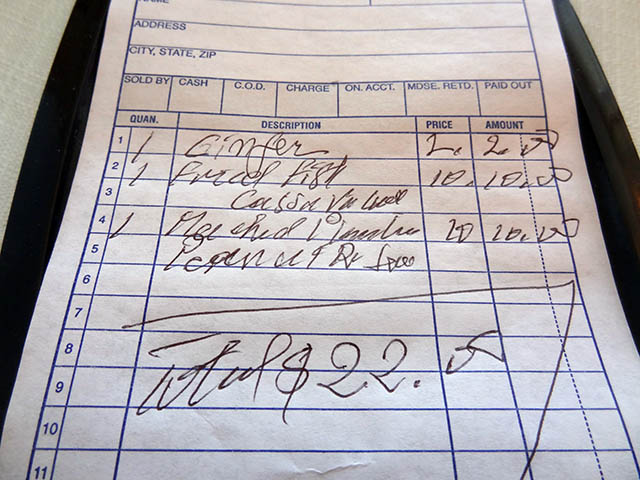 NAME
ADDRESS
CITY, STATE, ZIP
SOLD BY CASH C.O.D. CHARGE ON. ACCT. MDSE. RETD. PAID OUT
QUAN. DESCRIPTION PRICE AMOUNT
1 1 Ginger 2. 2.00
2 1 Fried Fish 10. 10.00
3 Cassava
4 1 Mashed 10 10.00
5
6
7
8 Total $22.00
9
10
11